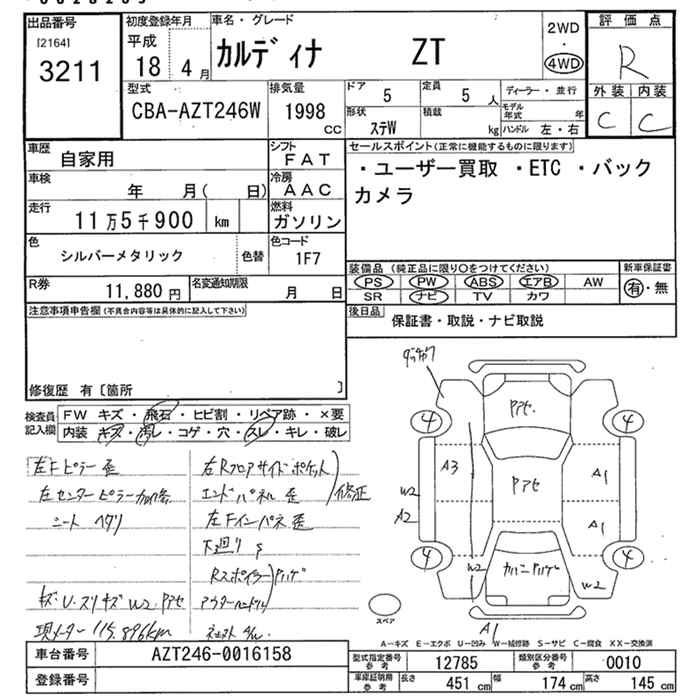 出品番号
[2164]
3211
初度登録年月
平成
18 4月
車名・グレード
カルディナ ZT
2WD
・
4WD
評価点
R
外装 内装
C C
型式
CBA-AZT246W
排気量
1998
cc
ドア
5
定員
5 人
形状
ステW
積載
kg
ディーラー・並行
モデル年式 年
ハンドル 左・右
車歴
自家用
シフト
FAT
車検
年 月( 日)
冷房
AAC
走行
11万5千900 km
燃料
ガソリン
色
シルバーメタリック
色替
色コード
1F7
R券
11,880 円
名変通知期限
月 日
セールスポイント(正常に機能するものに限ります)
・ユーザー買取 ・ETC ・バック
カメラ
装備品 (純正品に限り○をつけてください)
PS PW ABS エアB AW
SR ナビ TV カワ
新車保証書
有・無
後日品
保証書・取説・ナビ取説
注意事項申告欄(不具合内容等は具体的に記入して下さい)
修復歴 有〔箇所 〕
検査員記入欄
FW キズ・飛石・ヒビ割・リペア跡・×要
内装 キズ・汚レ・コゲ・穴・スレ・キレ・破レ
左Fピラー 歪
左センターピラー
シート ヘタリ
キズ U.スリキズ W2 アセ
現メーター 115,896km
右Rフロアサイドポケット
エンドパネル 歪
修正
左Fインパネ 歪
下廻り S
Rスポイラー ハゲ
アウターハンドル
4
4
4
4
アセ.
アセ
A3
W2
A2
A1
A1
W2
W2
ハゲ
A1
スペア
A−キズ E−エクボ U−凹み W−補修跡 S−サビ C−腐食 XX−交換済
車台番号
AZT246-0016158
登録番号
型式指定番号 参考
12785
類別区分番号 参考
0010
車庫証明用 参考
長さ 451 cm
幅 174 cm
高さ 145 cm